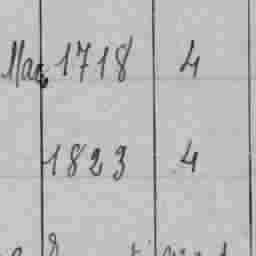 Mar 1718 4
1823 4